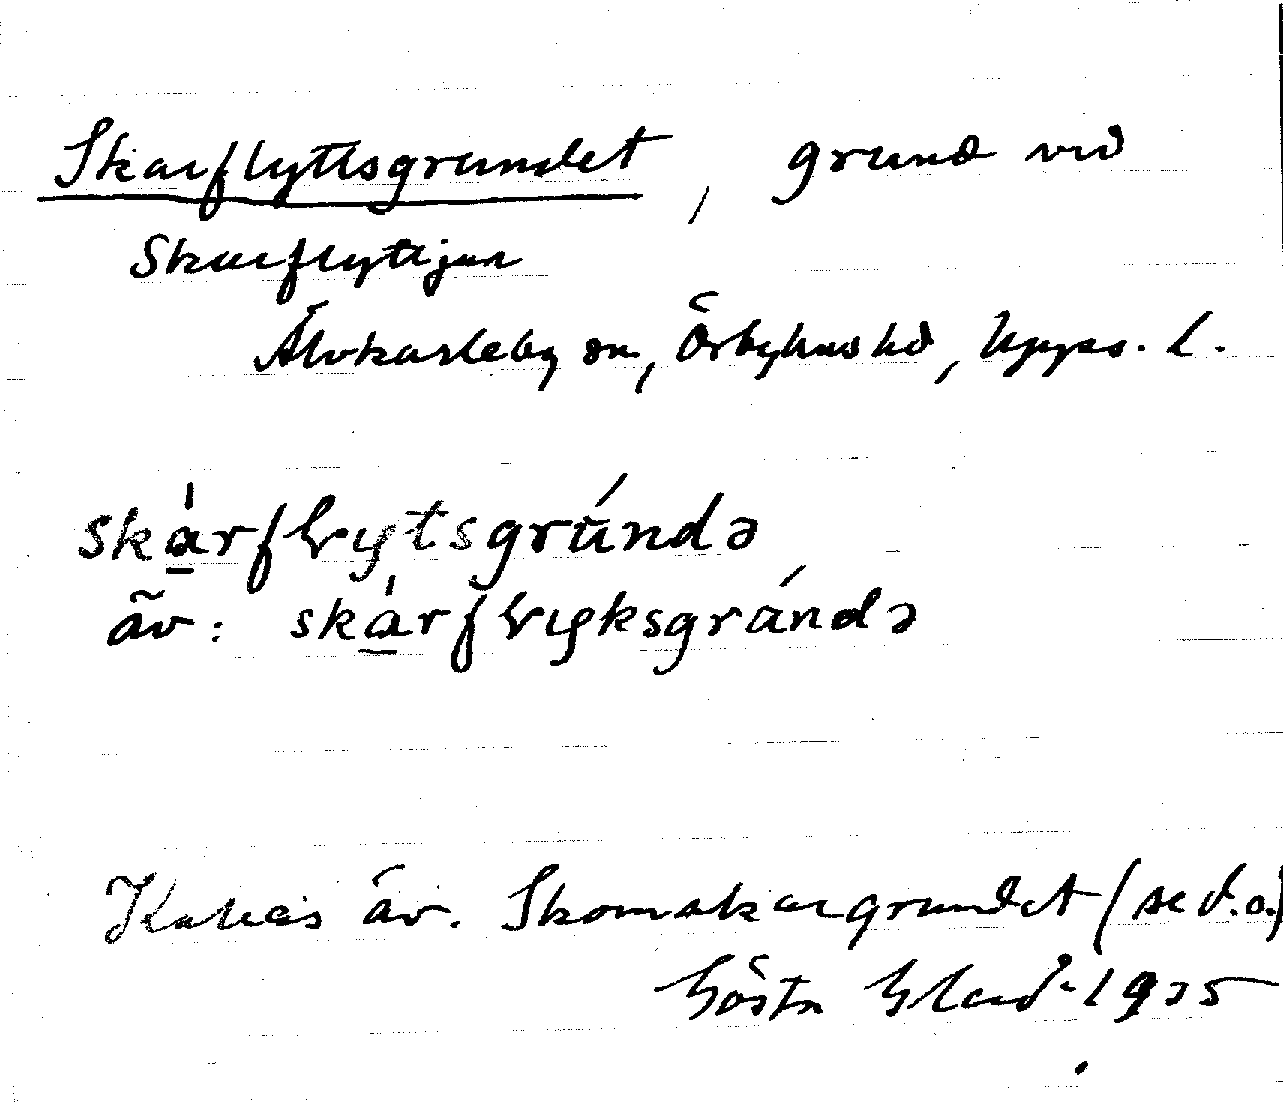 Skarflyttsgrundet, grund vid
Skarflyttjan
Älvkarleby sn, Örbyhus hd, Upps. l.
skárflytsgrúndə
äv: skárflyksgrándə
Kallas äv. Skomakargrundet (se d.o.)
Gösta Blad 1935